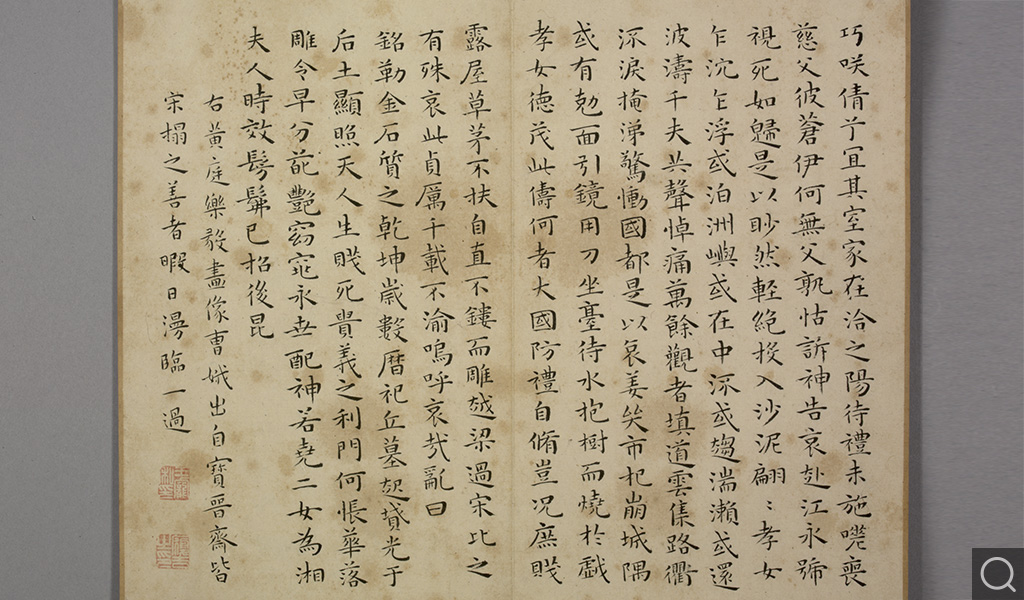 巧咲倩兮宜其室家在洽之陽待禮未施嗟喪
慈父彼蒼伊何無父孰怙訴神告哀赴江永號
視死如歸是以眇然輕絕投入沙泥翩〻孝女
乍沉乍浮或泊洲嶼或在中流或趨湍瀨或還
波濤千夫共聲悼痛萬餘觀者填道雲集路衢
流淚掩涕驚慟國都是以哀姜哭市杞崩城隅
或有勊面引鏡用刀坐臺待水抱樹而燒於戲
孝女德茂此儔何者大國防禮自脩豈況庶賤
露屋草茅不扶自直不鏤而雕越梁過宋比之
有殊哀此貞厲千載不渝嗚呼哀哉亂曰
銘勒金石質之乾坤歲數曆祀丘墓起墳光于
后土顯照天人生賤死貴義之利門何悵華落
雕令早分葩艷窈窕永世配神若堯二女為湘
夫人時效髣髴已招後昆
右黃庭樂毅畫像曹娥出自寶晉齋皆
宋搨之善者暇日漫臨一過